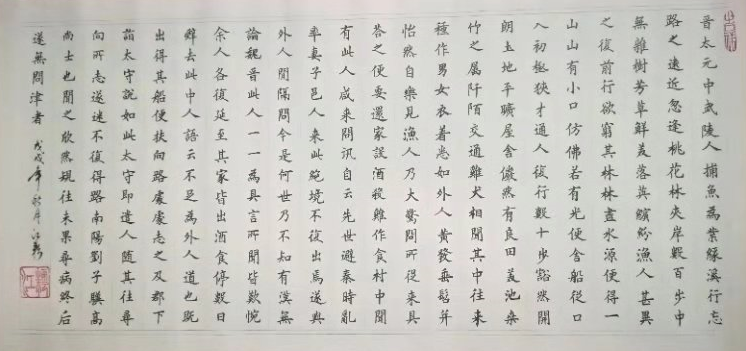 晉太元中武陵人捕魚為業緣溪行忘
路之遠近忽逢桃花林夾岸數百步中
無雜樹芳草鮮美落英繽紛漁人甚異
之復前行欲窮其林林盡水源便得一
山山有小口仿佛若有光便舍船從口
入初極狹才通人復行數十步豁然開
朗土地平曠屋舍儼然有良田美池桑
竹之屬阡陌交通雞犬相聞其中往來
種作男女衣着悉如外人黃發垂髫并
怡然自樂見漁人乃大驚問所從來具
答之便要還家設酒殺雞作食村中聞
有此人咸來問訊自云先世避秦時亂
率妻子邑人來此絕境不復出焉遂與
外人間隔問今是何世乃不知有漢無
論魏晉此人一一為具言所聞皆歎惋
余人各復延至其家皆出酒食停數日
辭去此中人語云不足為外人道也既
出得其船便扶向路處處志之及郡下
詣太守說如此太守即遣人隨其往尋
向所志遂迷不復得路南陽劉子驥高
尚士也聞之欣然規往未果尋病終后
遂無問津者 戊戌年